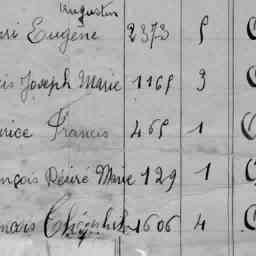 Augustin
ri Eugène 2373 5
is Joseph Marie 1165 3
rice Francis 465 1
nçois Désiré Marie 129 1
nçois 1606 4